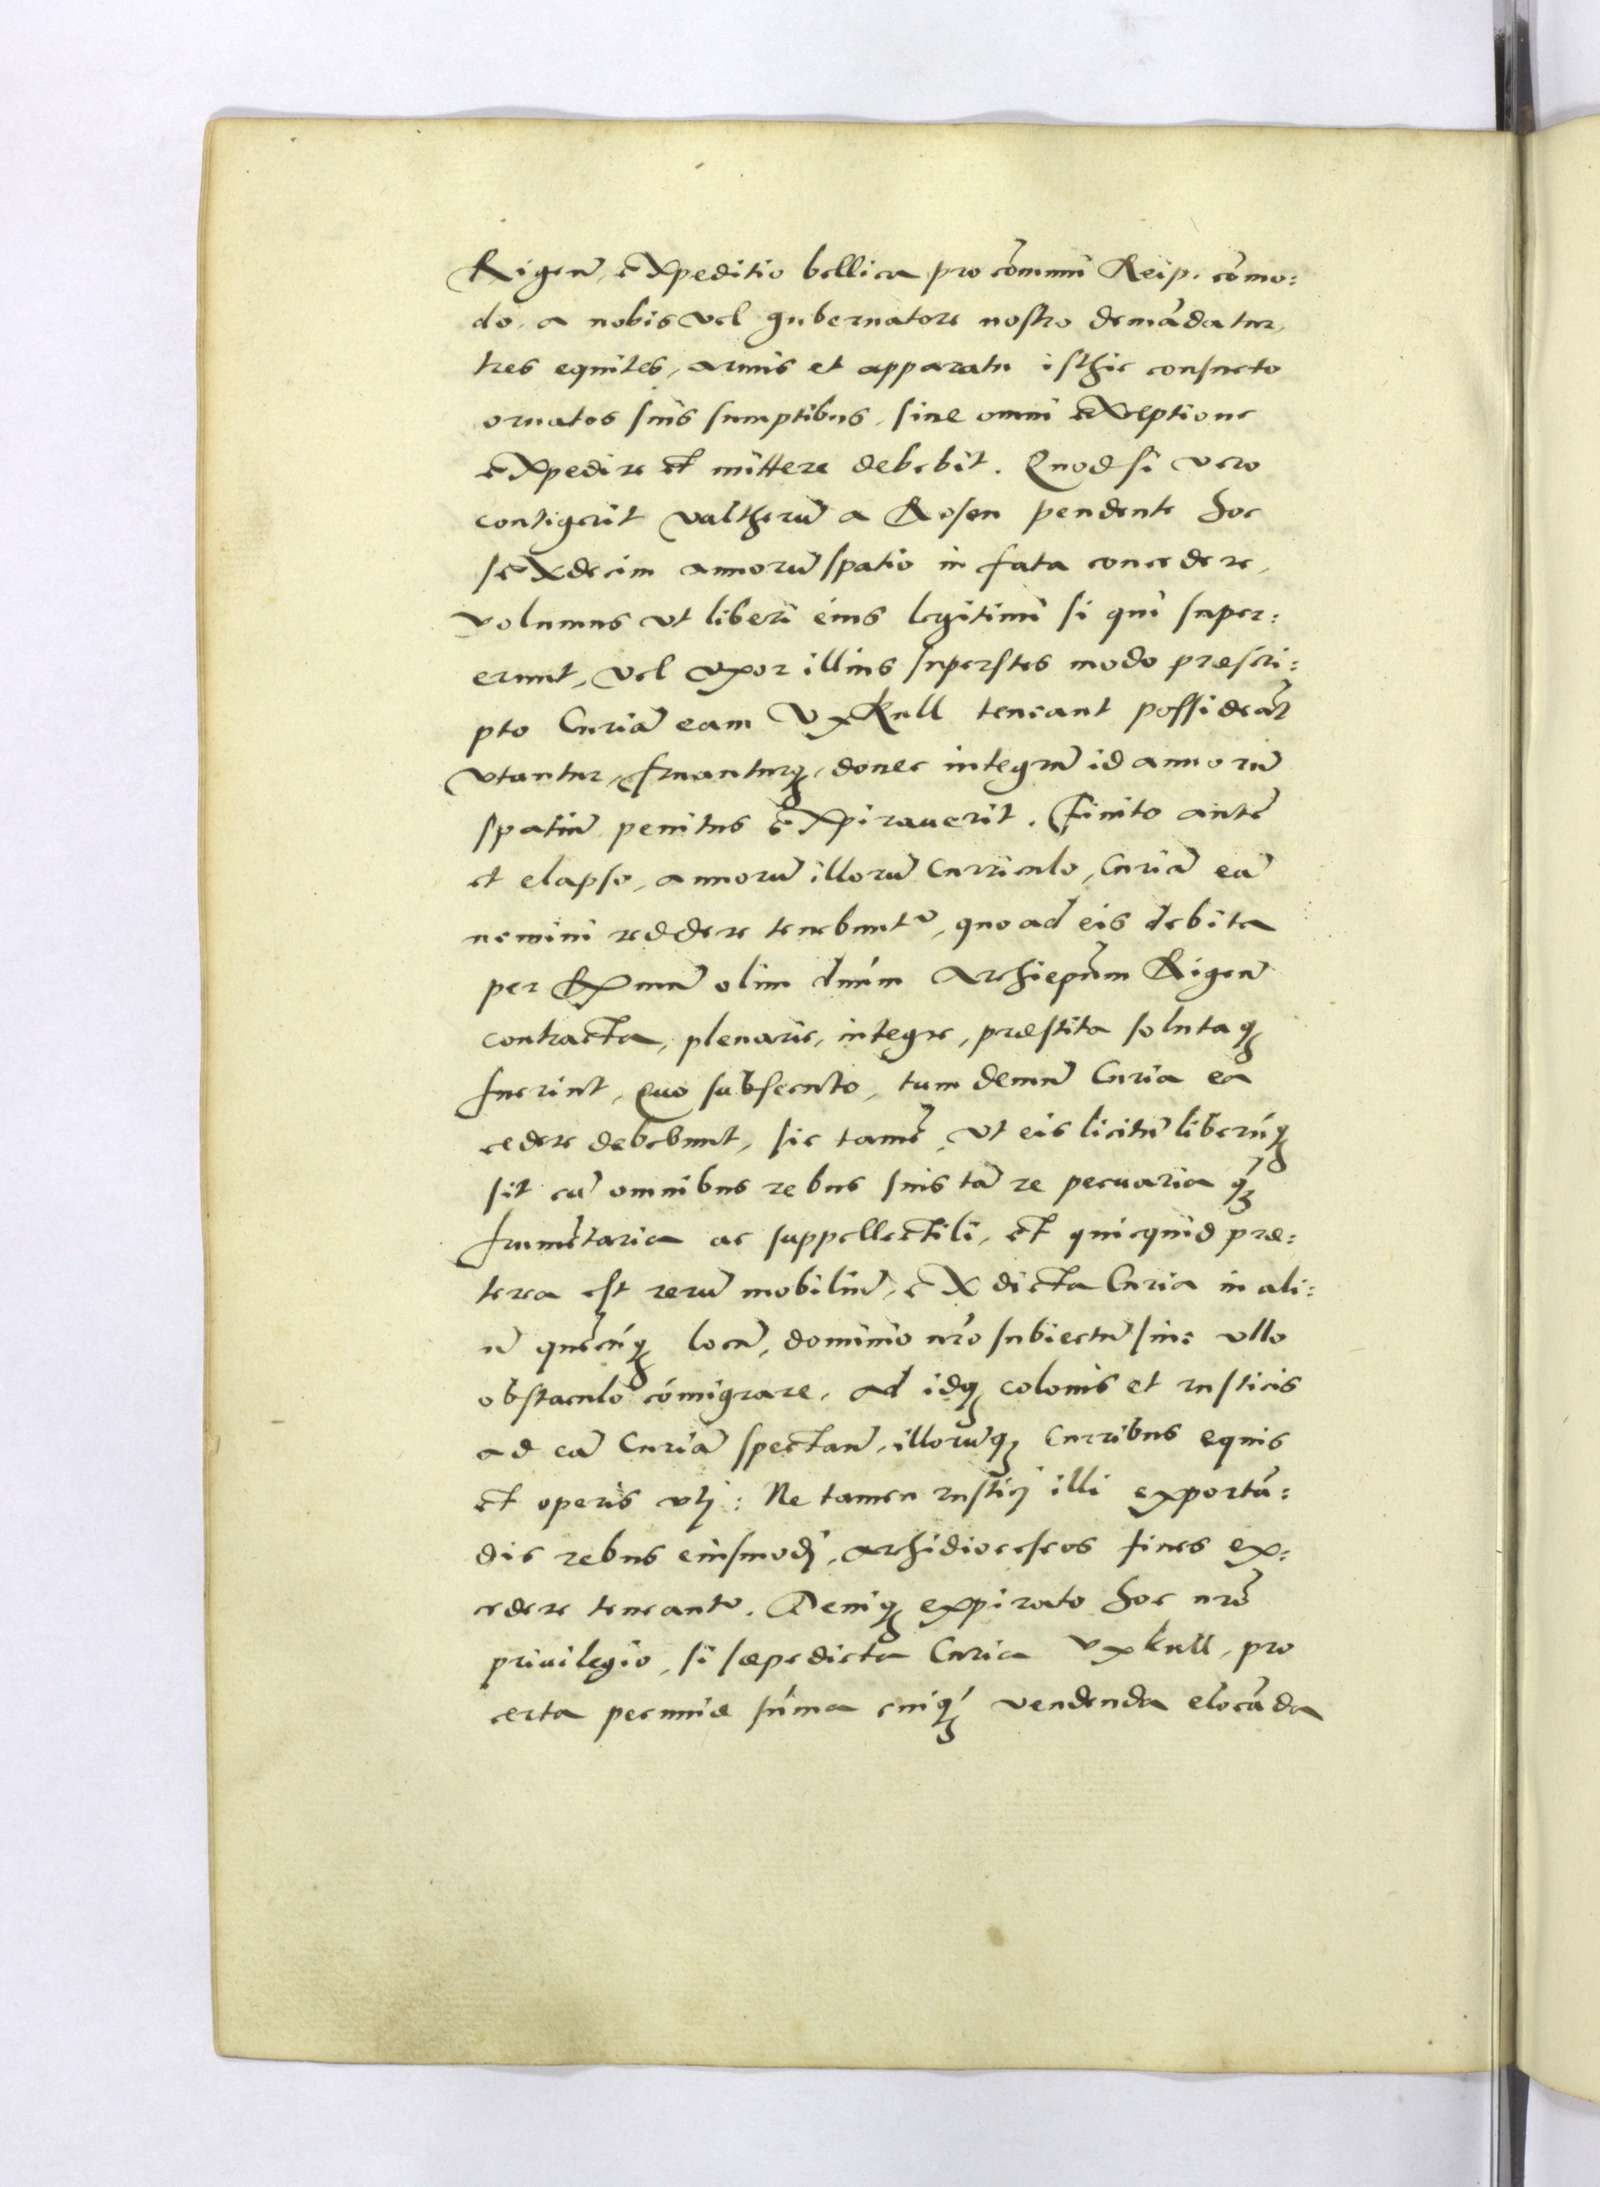 Rigen̄, expeditio bellica pro cōmuni Reip. cōmo:
do, a nobis vel gubernatore nostro demādatur,
tres equites, armis et apparatu isthic consueto
ornatos suis sumptibus, sine omni exceptione
expedire et mittere debebit. Quod si vero
contigerit Valtherū a Rosen pendente hoc
sexdecim annorū spatio in fata concedere,
volumus vt liberi eius legitimi si qui super:
erunt, vel vxor illius superstes modo præscri:
pto Curiā eam Vxkull teneant possideāt
vtantur, fruanturq₃, donec integrū id annorū
spatiū penitus expirauerit. Finito autē
et elapso, annorū illorū curriculo, Curiā eā
nemini reddere tenebunt᷑, quoad eis debita
per Exmū olim dn̄um Archiepūm Rigen̄
contracta, plenarie, integre, præstita solutaq₃
fuerint, quo subsecuto, tum demū Curia ea
cedere debebunt, sic tamē, vt eis licitū liberūq₃
sit cū omnibus rebus suis tā re pecuaria q̄₃
frumētaria ac suppellectili, et quicquid præ:
terea est rerū mobiliū, ex dicta Curia in ali:
ū quēcūq₃ locū, dominio nr̄o subiectū sine vllo
obstaculo cōmigrare, ad idq₃ colonis et rusticis
ad eā Curiā spectan̄, illorumq₃ curribus equis
et operis vti: Ne tamen rustici illi exportā:
dis rebus eiusmodi, Archidioceseos fines ex:
cedere teneant᷑. Deniq₃ expirato hoc nr̄o
priuilegio, si sæpedicta Curia Vxkull, pro
certa pecuniæ sūma cuiq₃ vendenda elocāda